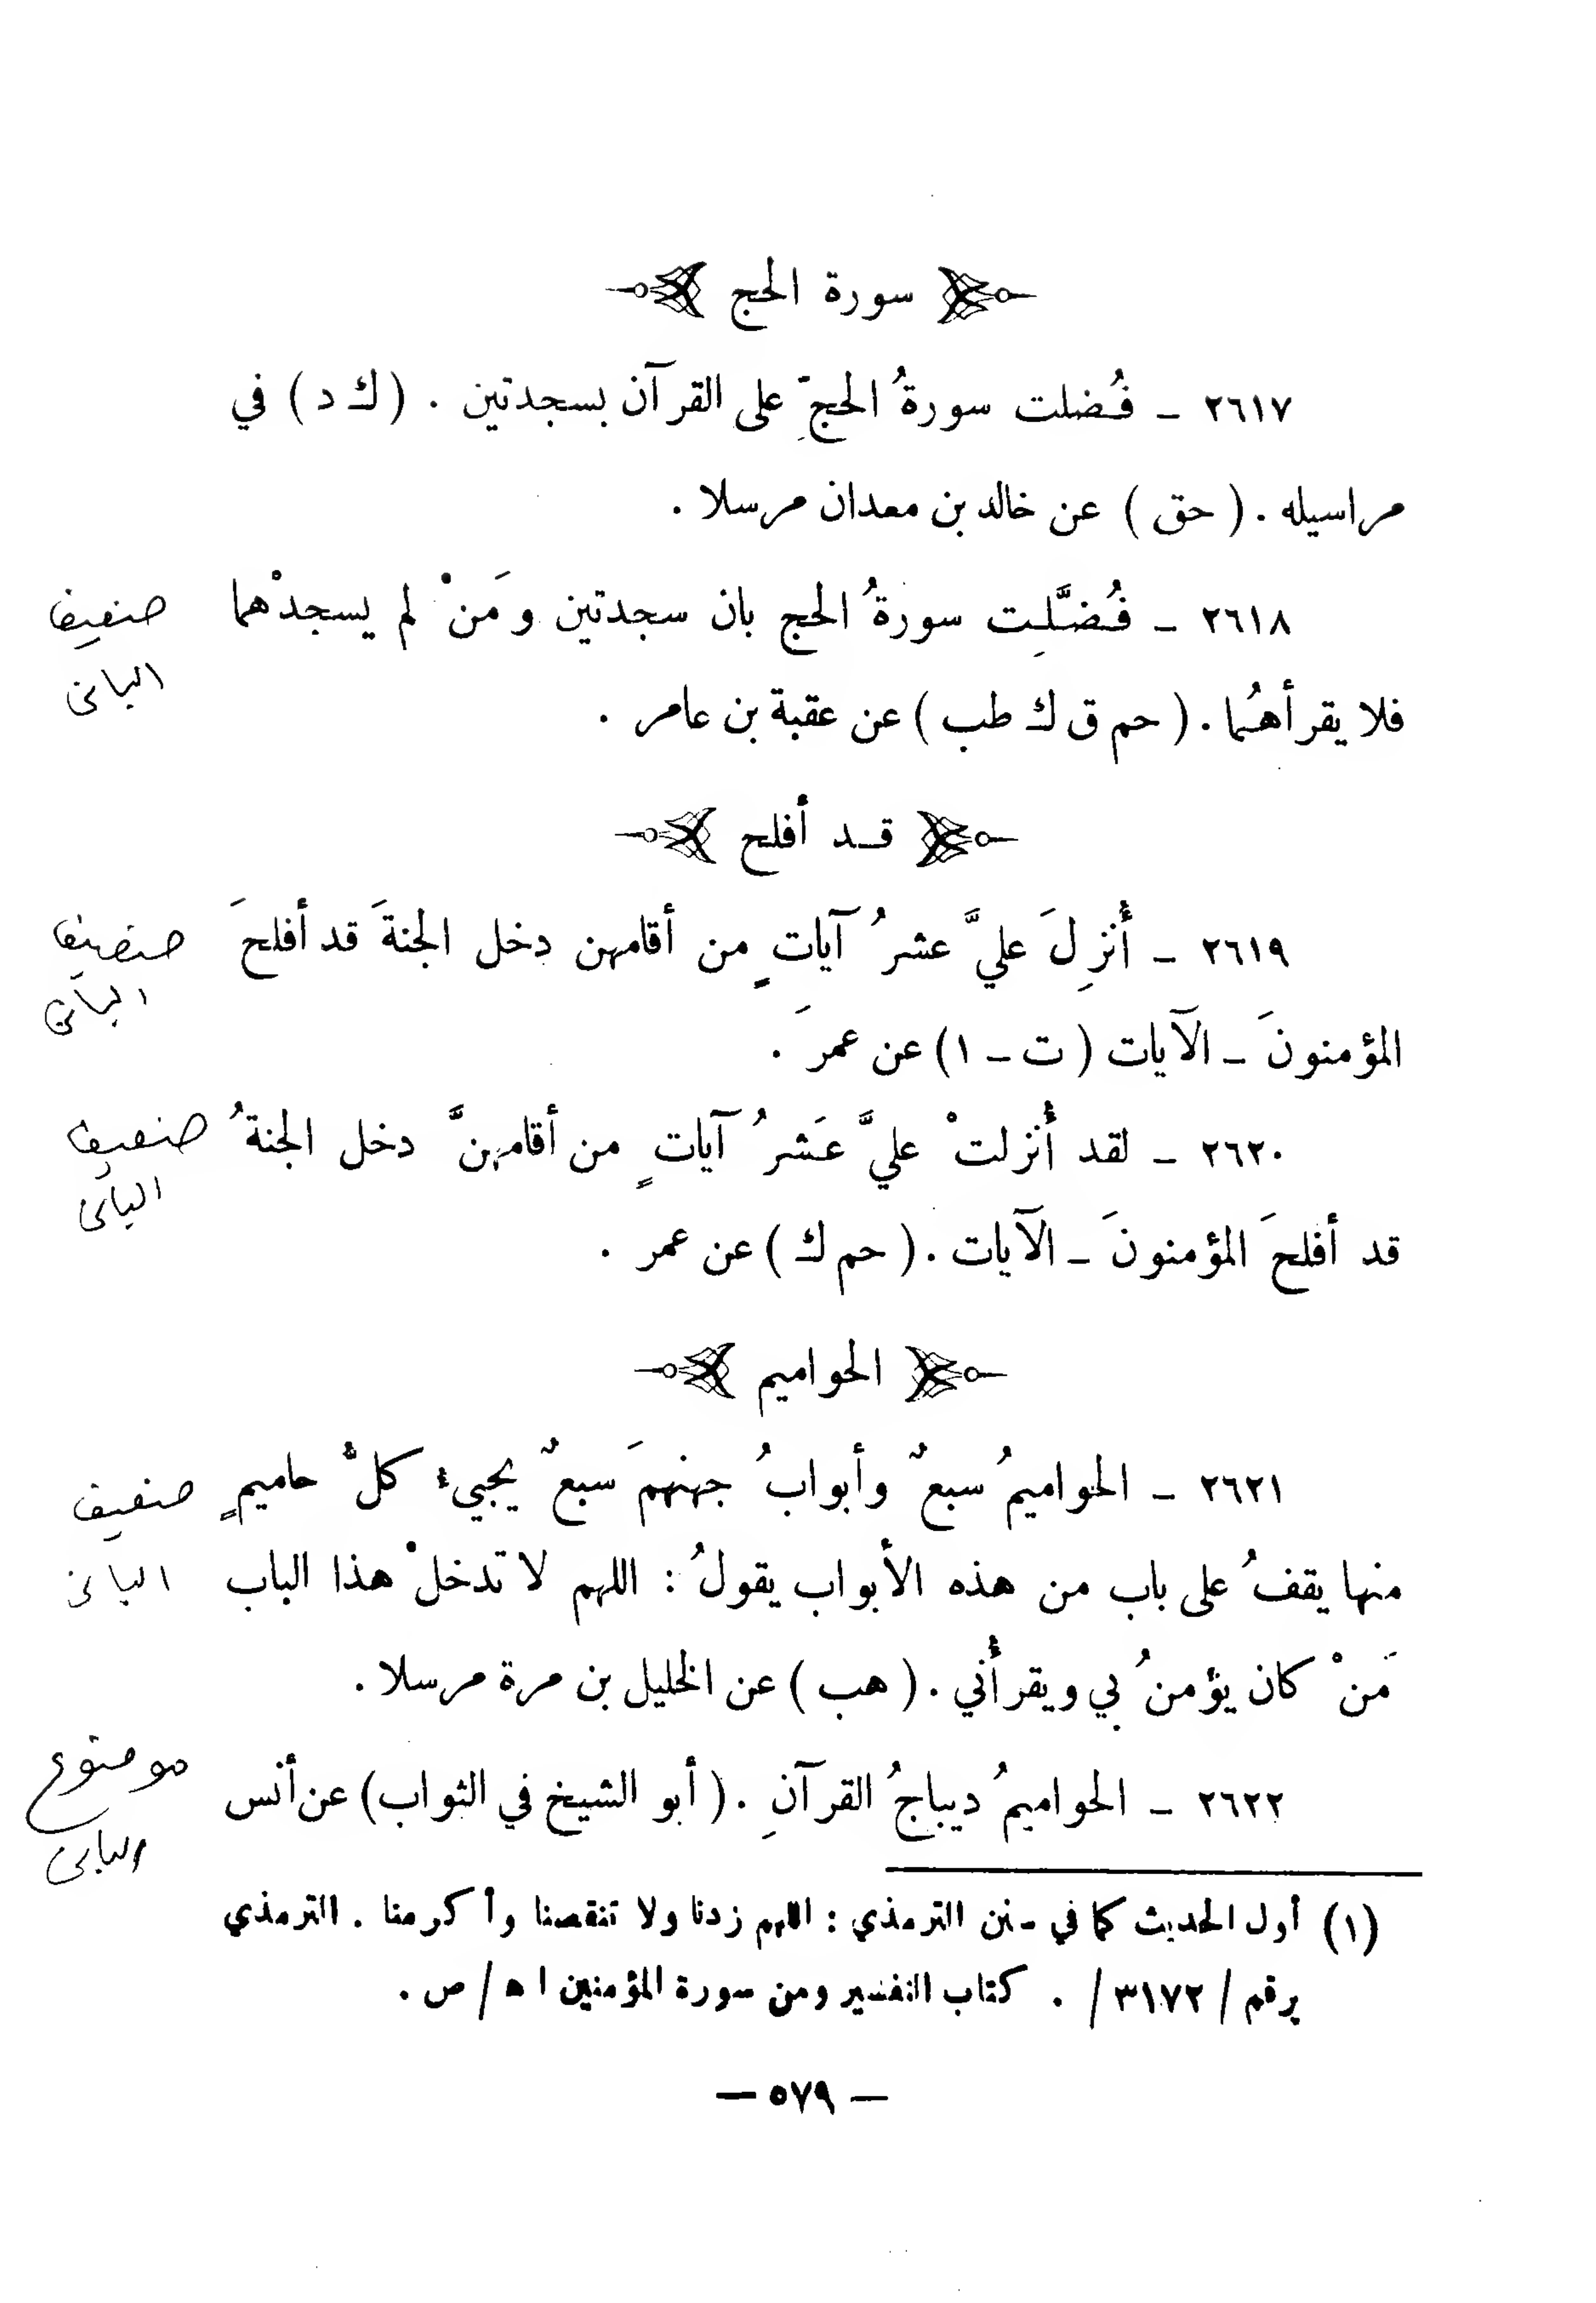 سورة الحج
٢٦١٧ ـ فُضلت سورةُ الحجِّ على القرآن بسجدتين . ( ك د ) في
مراسيله . ( حق ) عن خالد بن معدان مرسلا .
٢٦١٨ ـ فُضَّلِت سورةُ الحج بان سجدتين ومَنْ لم يسجدْهما
ضعيف
الباني
فلا يقرأهُما . ( حم ق ك طب ) عن عقبة بن عامر .
قـد أفلح
٢٦١٩ ـ أُنزِلَ عليَّ عشرُ آياتٍ من أقامهن دخل الجنةَ قد أفلحَ
ضعيف
الباني
المؤمنونَ ـ الآيات ( ت ـ ١ ) عن عمرَ .
٢٦٢٠ ـ لقد أُنزلتْ عليَّ عَشرُ آياتٍ من أقامهنَّ دخل الجنةُ
ضعيف
الباني
قد أفلحَ المؤمنونَ ـ الآيات . ( حم ك ) عن عمر .
الحواميم
٢٦٢١ ـ الحواميمُ سبعٌ وأبوابُ جهنمَ سبعٌ يجيء كلُّ حاميمٍ
ضعيف
منها يقفُ على باب من هذه الأبواب يقولُ : اللهم لا تدخلْ هذا الباب
الباني
مَنْ كان يؤمنُ بي ويقرأُني . ( هب ) عن الخليل بن مرة مرسلا .
٢٦٢٢ ـ الحواميمُ ديباجُ القرآنِ . ( أبو الشيخ في الثواب ) عن أنس
موضوع
الباني
(١) أول الحديث كما في سنن الترمذي : اللهم زدنا ولا تنقصنا وأكرمنا . الترمذي
برقم / ٣١٧٢ / . كتاب التفسير ومن سورة المؤمنين ا ه / ص .
— ٥٧٩ —